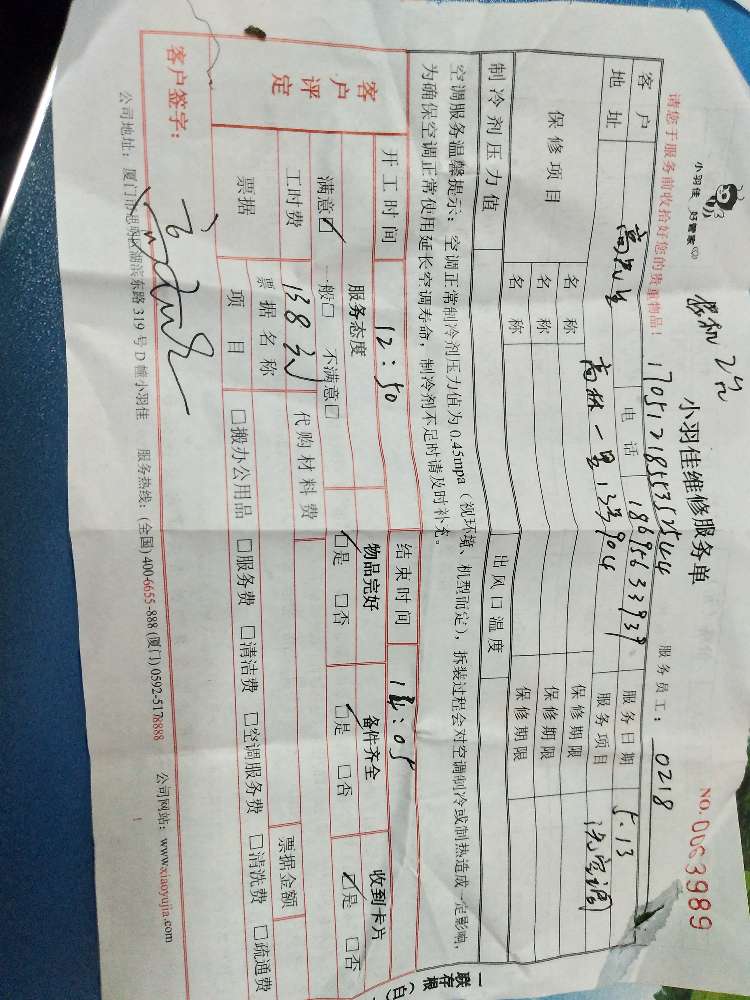 小羽佳 好管家
挂机2台
小羽佳维修服务单
NO. 0063989
请您于服务前收拾好您的贵重物品!
17051218553152544
服务员工: 0218
客户 高先生 电话 18695633939 服务日期 5.13
地址 高林一里13号904 服务项目 洗空调
保修项目 名称 保修期限
名称 保修期限
名称 保修期限
制冷剂压力值 出风口温度
空调服务温馨提示: 空调正常制冷剂压力值为0.45mpa(视环境、机型而定), 拆装过程会对空调制冷或制热造成一定影响,
为确保空调正常使用延长空调寿命, 制冷剂不足时请及时补充。
开工时间 12:50 结束时间 14:05
客户评定 服务态度 物品完好 备件齐全 收到卡片
满意☑ 一般□ 不满意□ ☑是 □否 ☑是 □否 ☑是 □否
工时费 138元 代购材料费
票据 票据名称 票据金额
项目 □搬办公用品 □服务费 □清洁费 □空调服务费 □清洗费 □疏通费
客户签字:
公司地址: 厦门市思明区湖滨东路319号D幢小羽佳 服务热线: (全国)400-6655-888 (厦门)0592-5178888 公司网站: www.xiaoyujia.com
一联存根(白